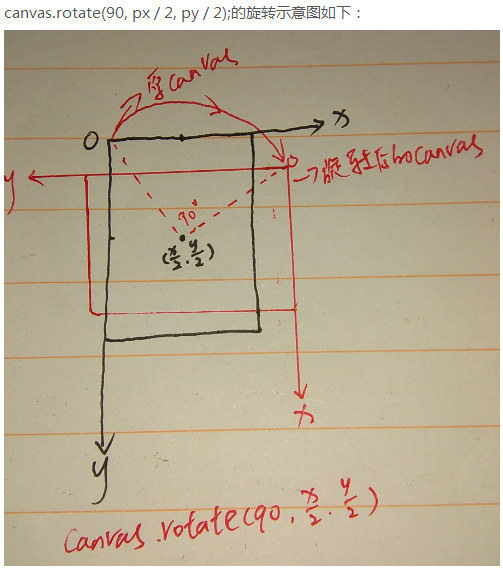 canvas.rotate(90, px / 2, py / 2);的旋转示意图如下：
原canvas
O
x
y
→旋转后的canvas
90°
(x/2, y/2)
x
y
canvas.rotate(90, x/2, y/2)